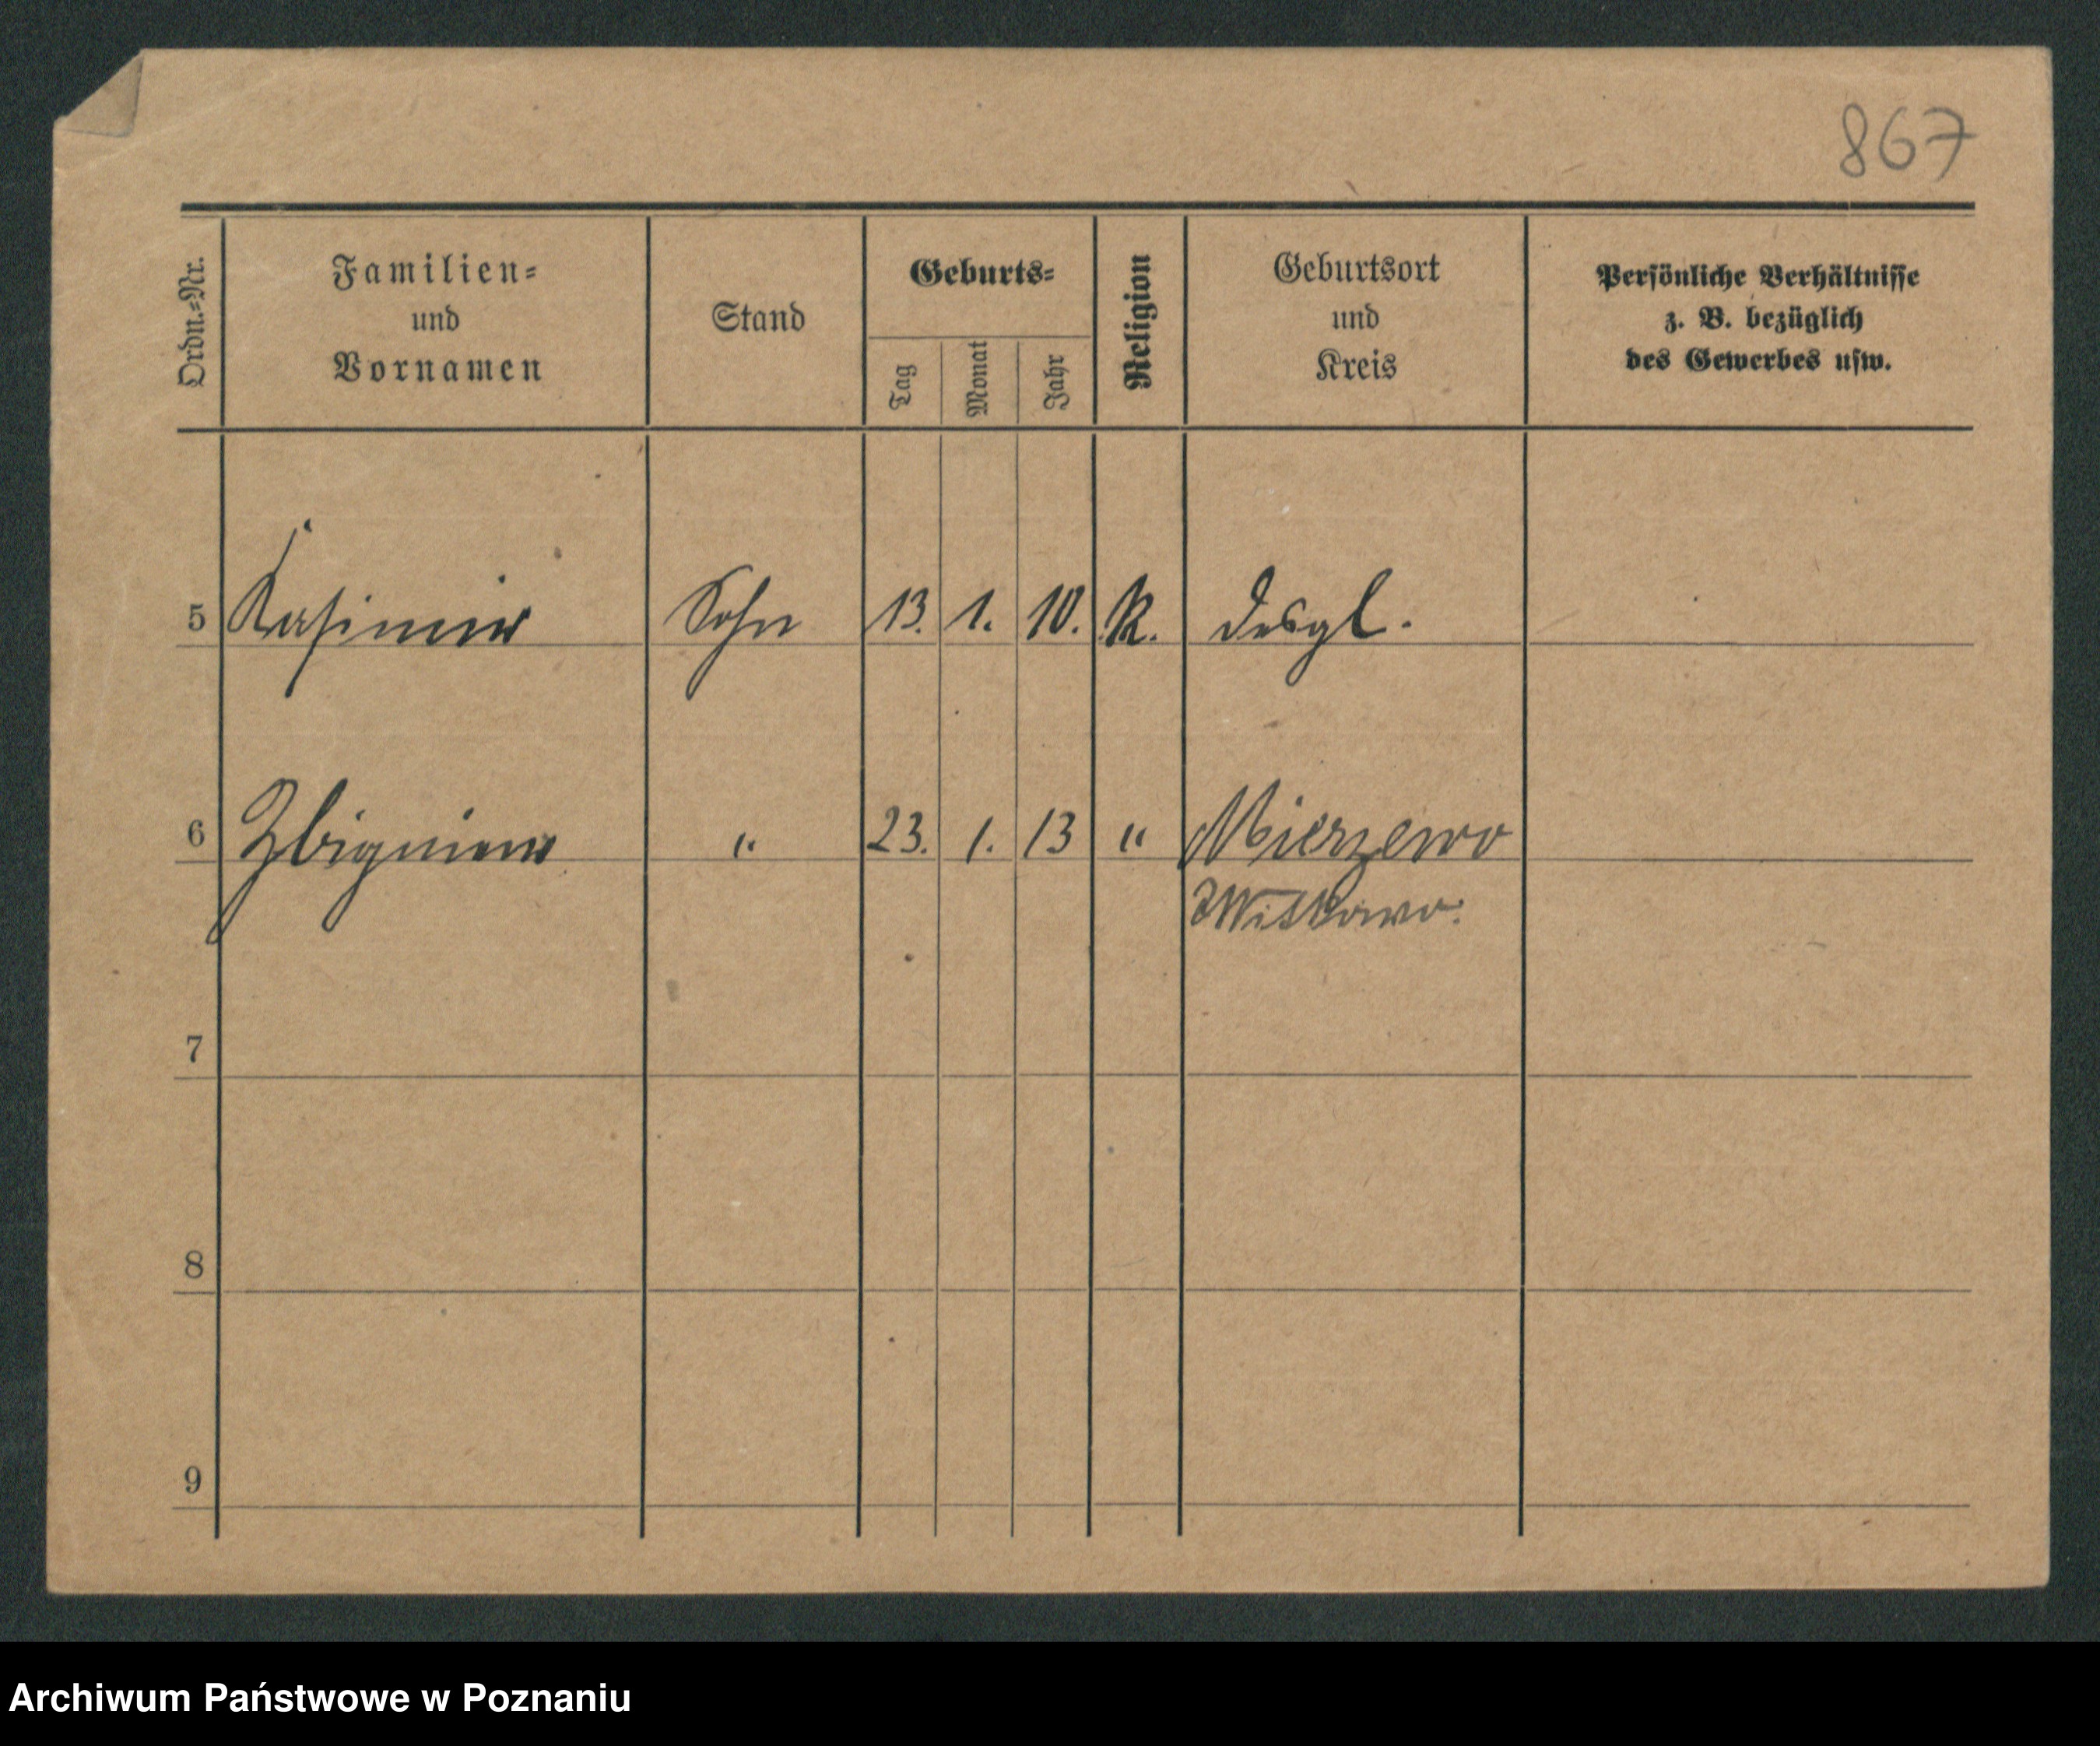 867
Ordn.=Nr.
Familien=
und
Vornamen
Stand
Geburts=
Tag
Monat
Jahr
Religion
Geburtsort
und
Kreis
Persönliche Verhältnisse
z. B. bezüglich
des Gewerbes usw.
5 Kasimir Sohn 13. 1. 10. K. desgl.
6 Zbigniew " 23. 1. 13 " Mierzewo
Witkowo.
7
8
9
Archiwum Państwowe w Poznaniu